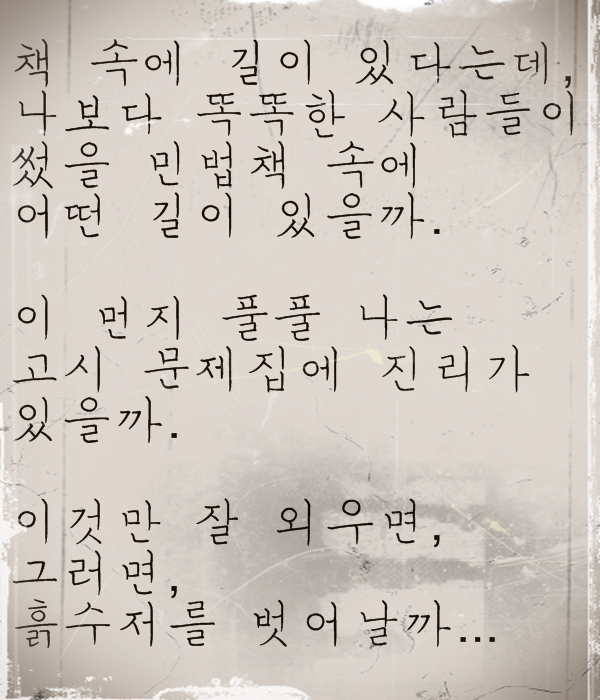 책 속에 길이 있다는데,
나보다 똑똑한 사람들이
썼을 민법책 속에
어떤 길이 있을까.
이 먼지 풀풀 나는
고시 문제집에 진리가
있을까.
이것만 잘 외우면,
그러면,
흙수저를 벗어날까...